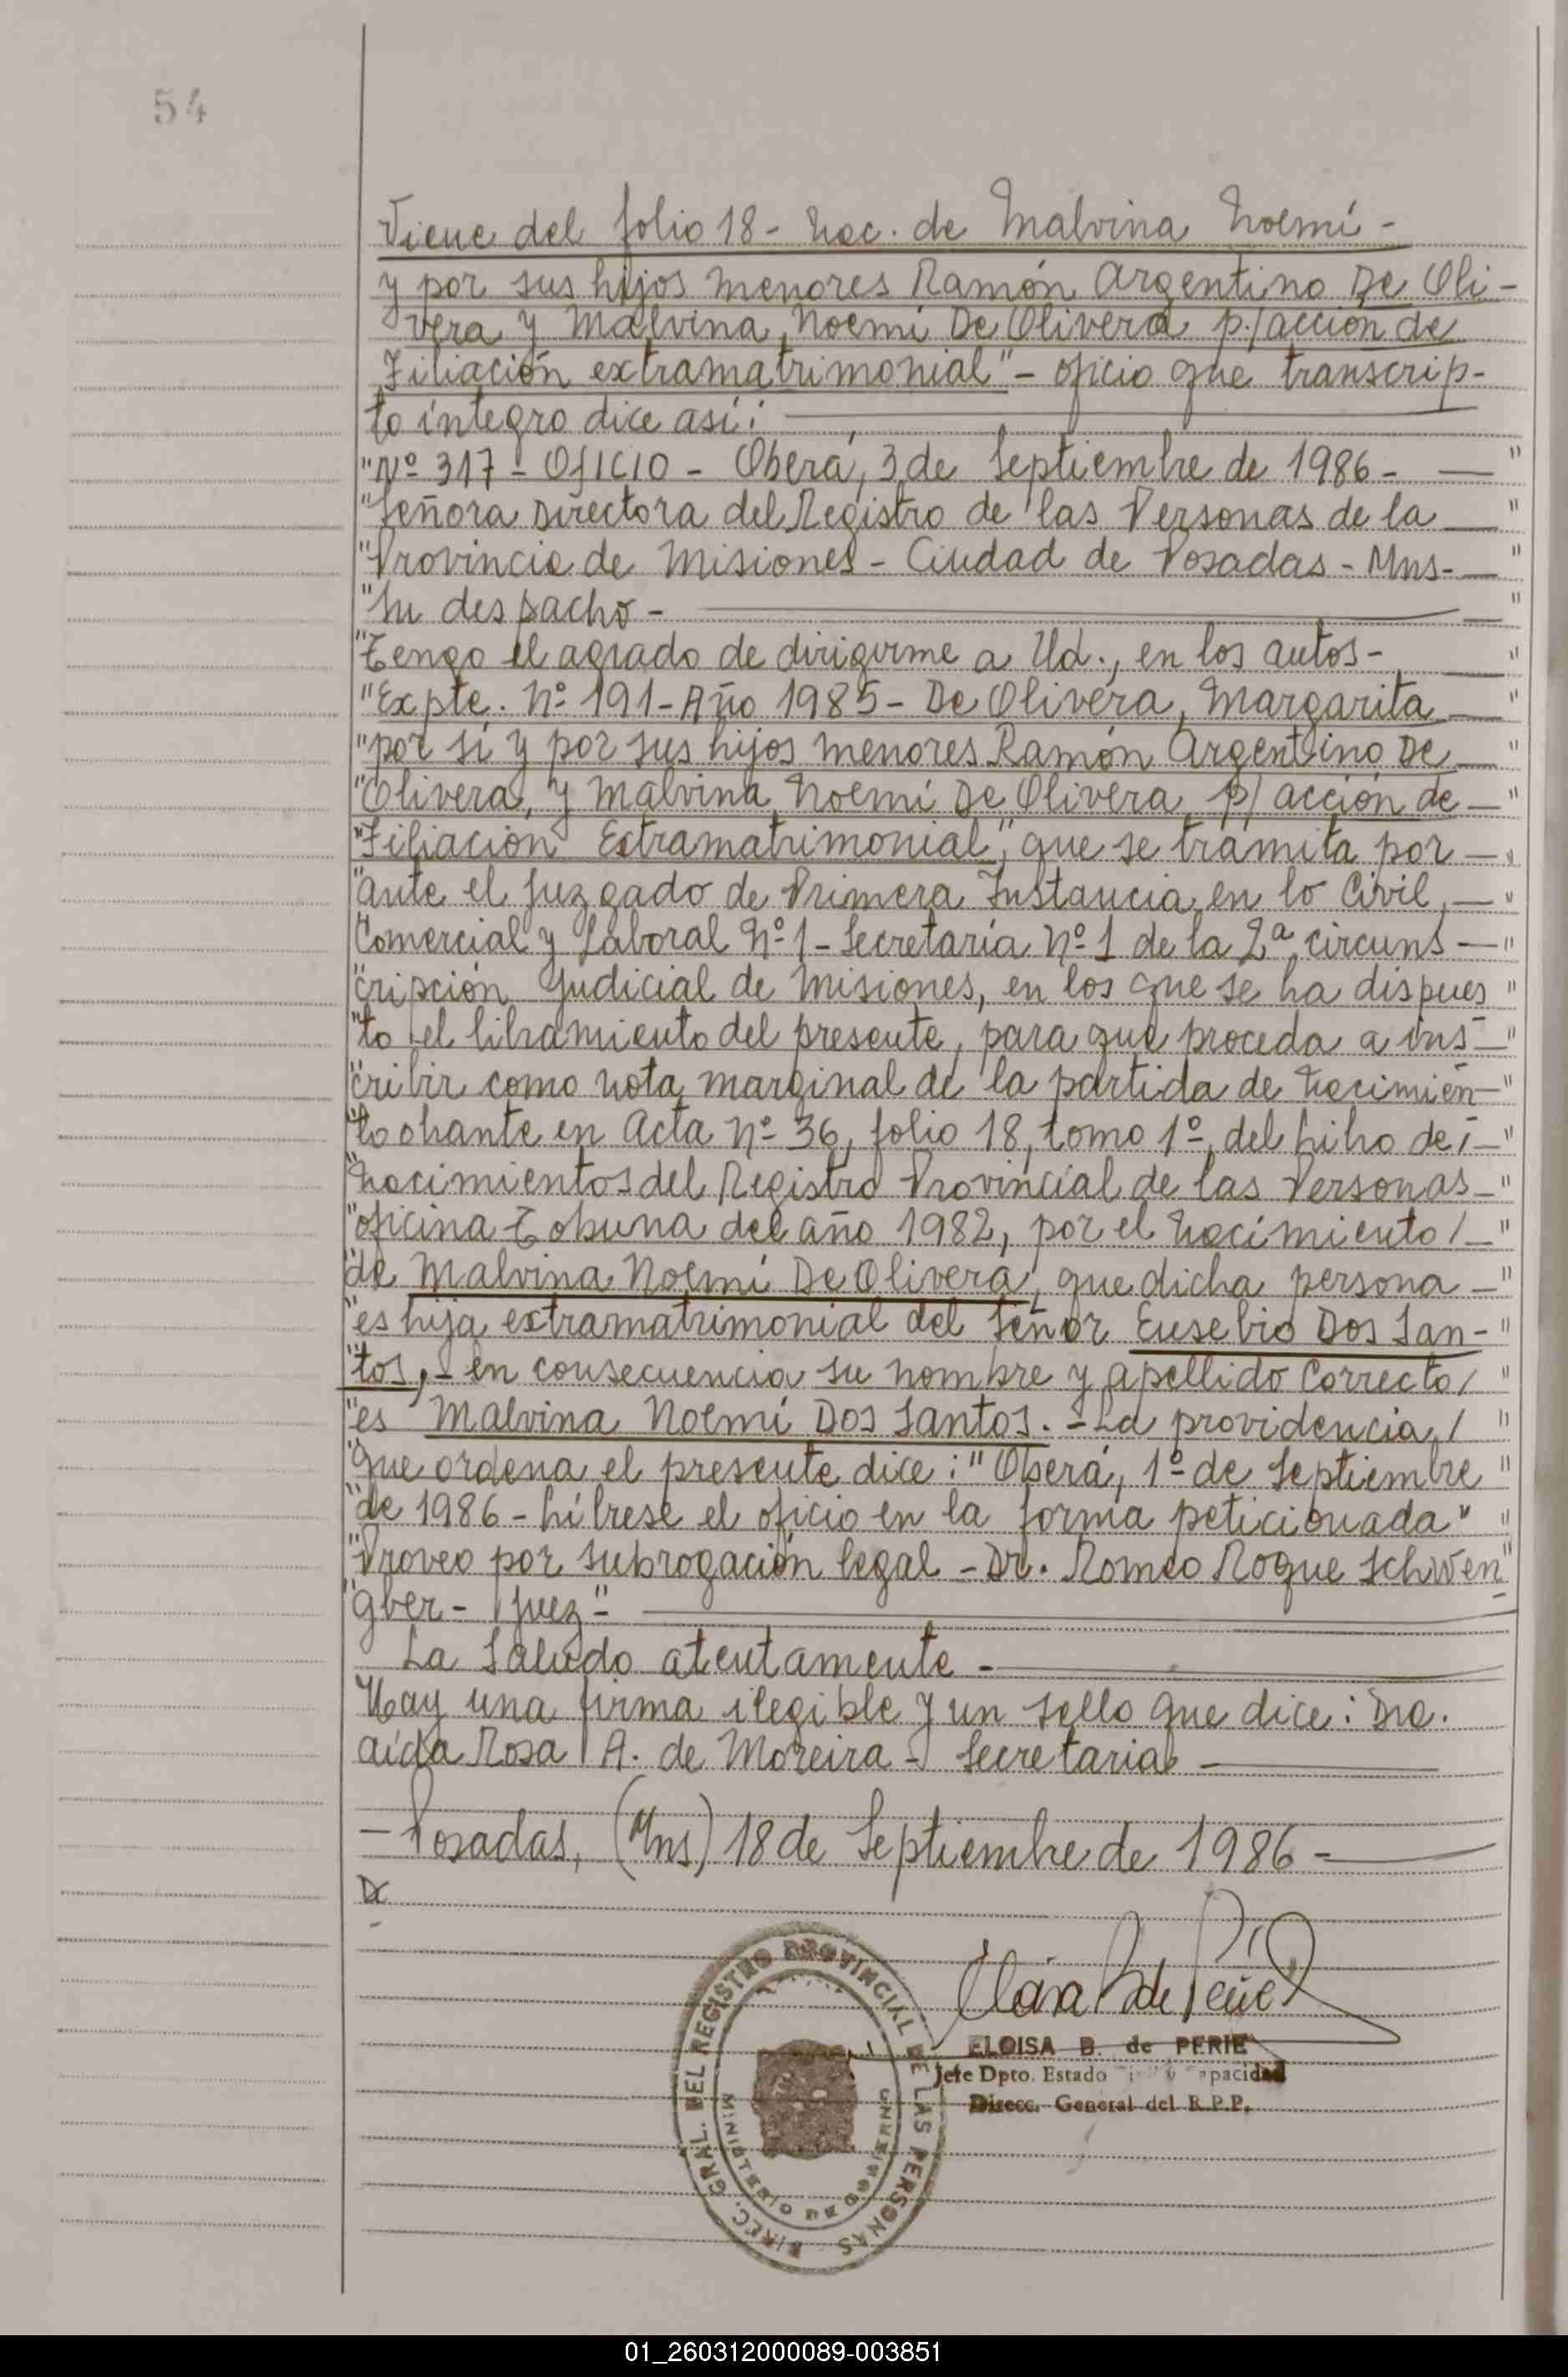 54
Viene del folio 18 - Nac. de Malvina Noemí -
y por sus hijos menores Ramón Argentino De Oli-
vera y Malvina Noemí De Olivera p/acción de
Filiación extramatrimonial" - oficio que transcrip-
to íntegro dice así:
"Nº 317 - Oficio - Oberá, 3 de Septiembre de 1986 - "
"Señora Directora del Registro de las Personas de la "
"Provincia de Misiones - Ciudad de Posadas - Mns- "
"Su despacho - "
"Tengo el agrado de dirigirme a Ud., en los autos - "
"Expte. Nº 191 - Año 1985 - De Olivera, Margarita "
"por sí y por sus hijos menores Ramón Argentino De "
"Olivera, y Malvina Noemí De Olivera p/ acción de "
"Filiación Extramatrimonial", que se tramita por "
"ante el Juzgado de Primera Instancia en lo Civil, "
"Comercial y Laboral Nº 1 - Secretaría Nº 1 de la 2ª circuns "
"cripción Judicial de Misiones, en los que se ha dispues "
"to el libramiento del presente, para que proceda a ins- "
"cribir como nota marginal de la partida de nacimien "
"to obrante en Acta Nº 36, folio 18, tomo 1º, del libro de "
"Nacimientos del Registro Provincial de las Personas "
"oficina Tobuna del año 1982, por el nacimiento / "
"de Malvina Noemí De Olivera, que dicha persona "
"es hija extramatrimonial del Señor Eusebio Dos San- "
"tos, - en consecuencia su nombre y apellido correcto / "
"es Malvina Noemí Dos Santos. - La providencia / "
"que ordena el presente dice: "Oberá, 1º de Septiembre "
"de 1986 - Líbrese el oficio en la forma peticionada" "
"Proveo por subrogación legal - Dr. Romeo Roque Schwen "
"gber - Juez -"
La Saludo atentamente -
Hay una firma ilegible y un sello que dice: Dra.
Aída Rosa A. de Moreira - Secretaria
- Posadas, (Mns) 18 de Septiembre de 1986 -
DIREC. GRAL. DEL REGISTRO PROVINCIAL DE LAS PERSONAS
MINISTERIO DE GOBIERNO
ELOISA B. de PERIE
Jefe Dpto. Estado Capacidad
Direcc. General del R.P.P.
01_260312000089-003851